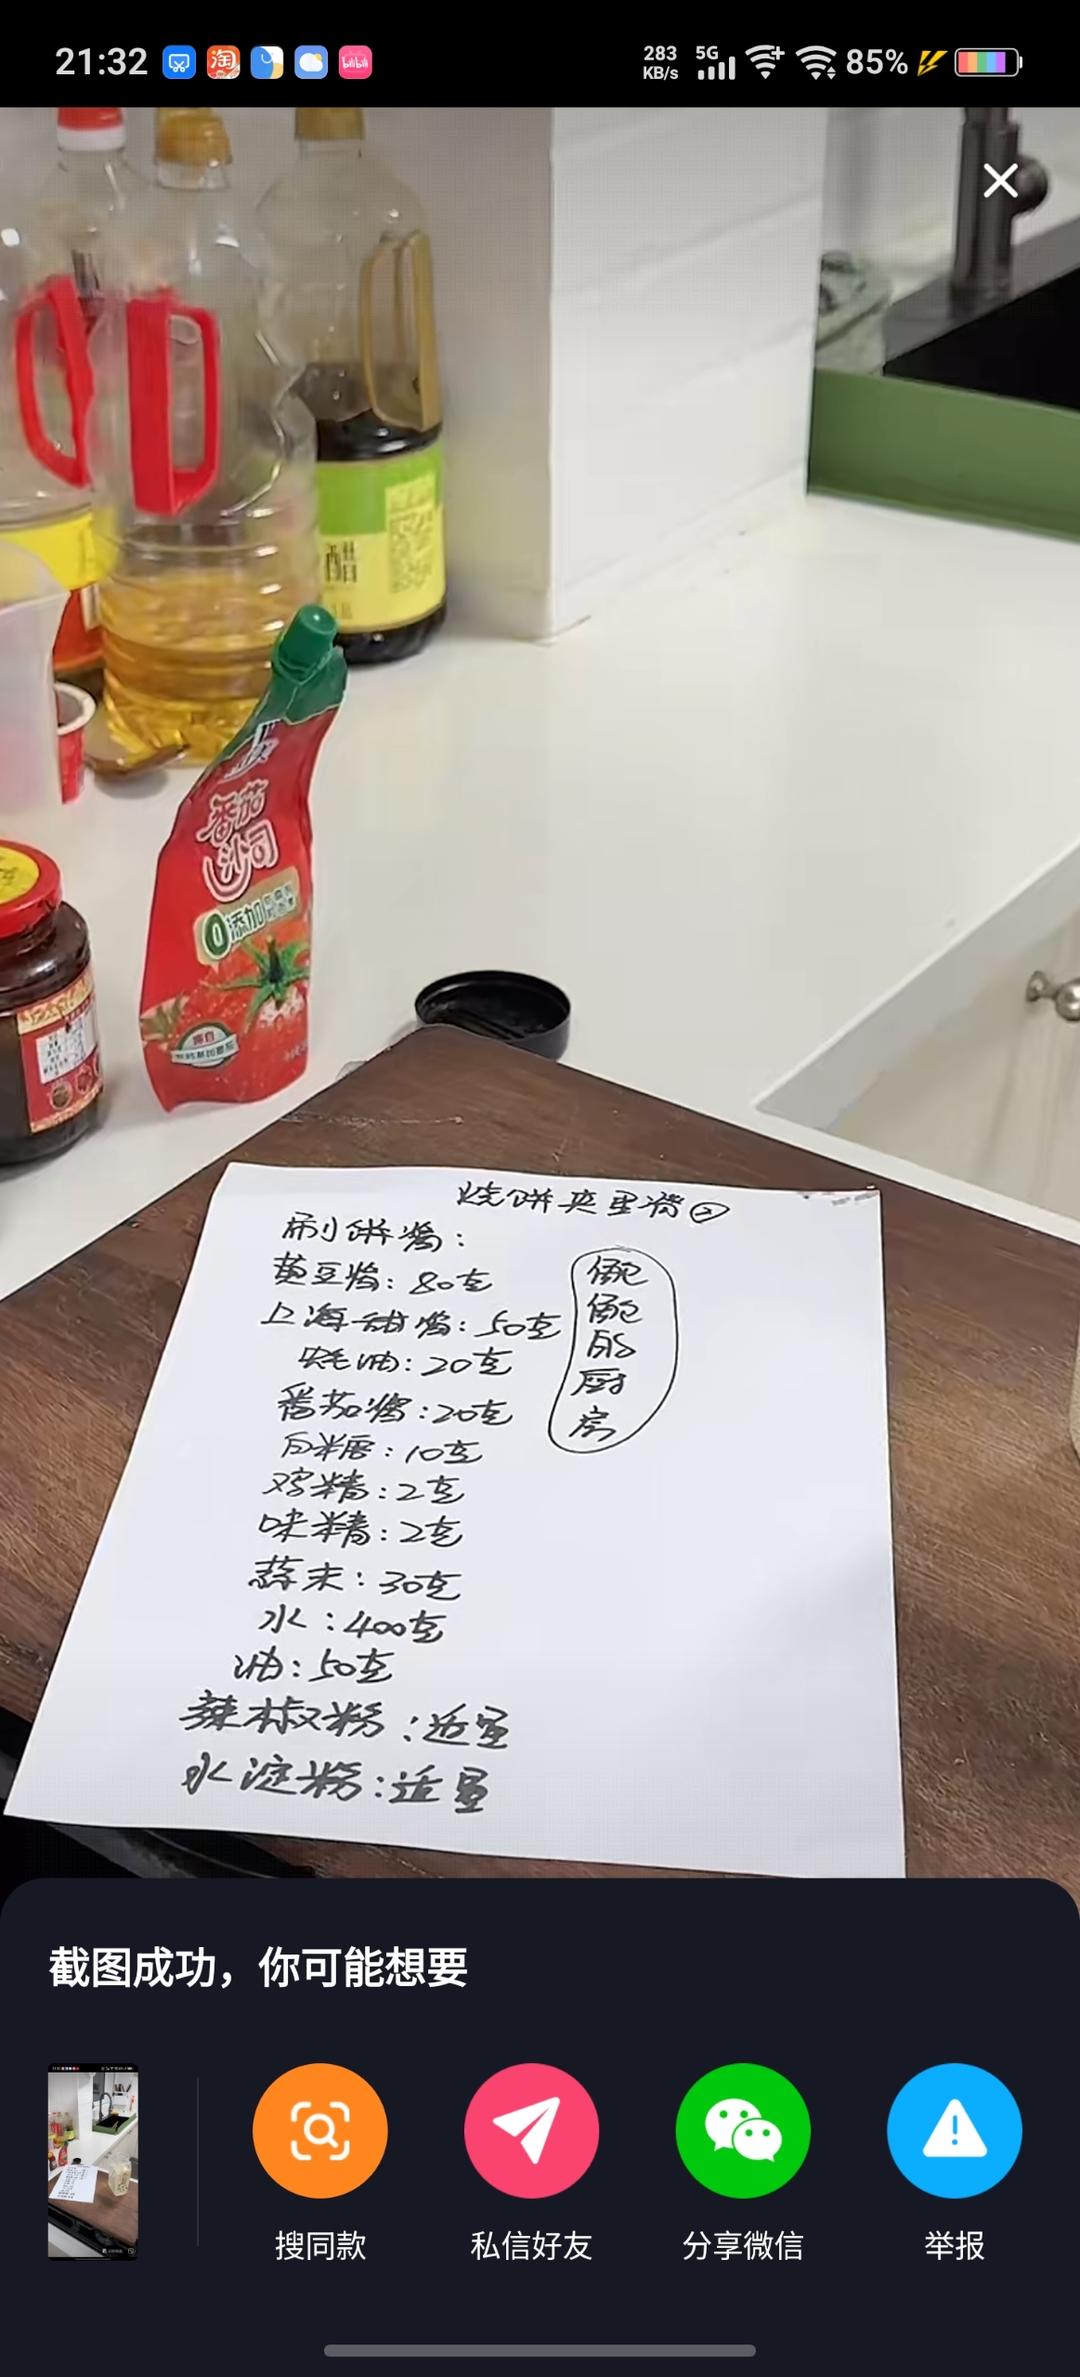 21:32
283 KB/s 5G 85%
醋
番茄
沙司
0添加
烧饼夹里脊②
刷饼酱:
黄豆酱:80克
上海甜酱:50克
蚝油:20克
番茄酱:20克
白糖:10克
鸡精:2克
味精:2克
蒜末:30克
水:400克
油:50克
辣椒粉:适量
水淀粉:适量
厨
房
截图成功，你可能想要
搜同款
私信好友
分享微信
举报